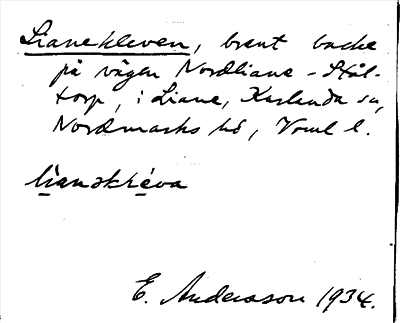 Lianekleven, brent backe
på vägen Nordliane - Stål-
torp, i Liane, Karlanda sn,
Nordmarks hd, Vrml l.
lìanəkléva
E. Andersson 1934.